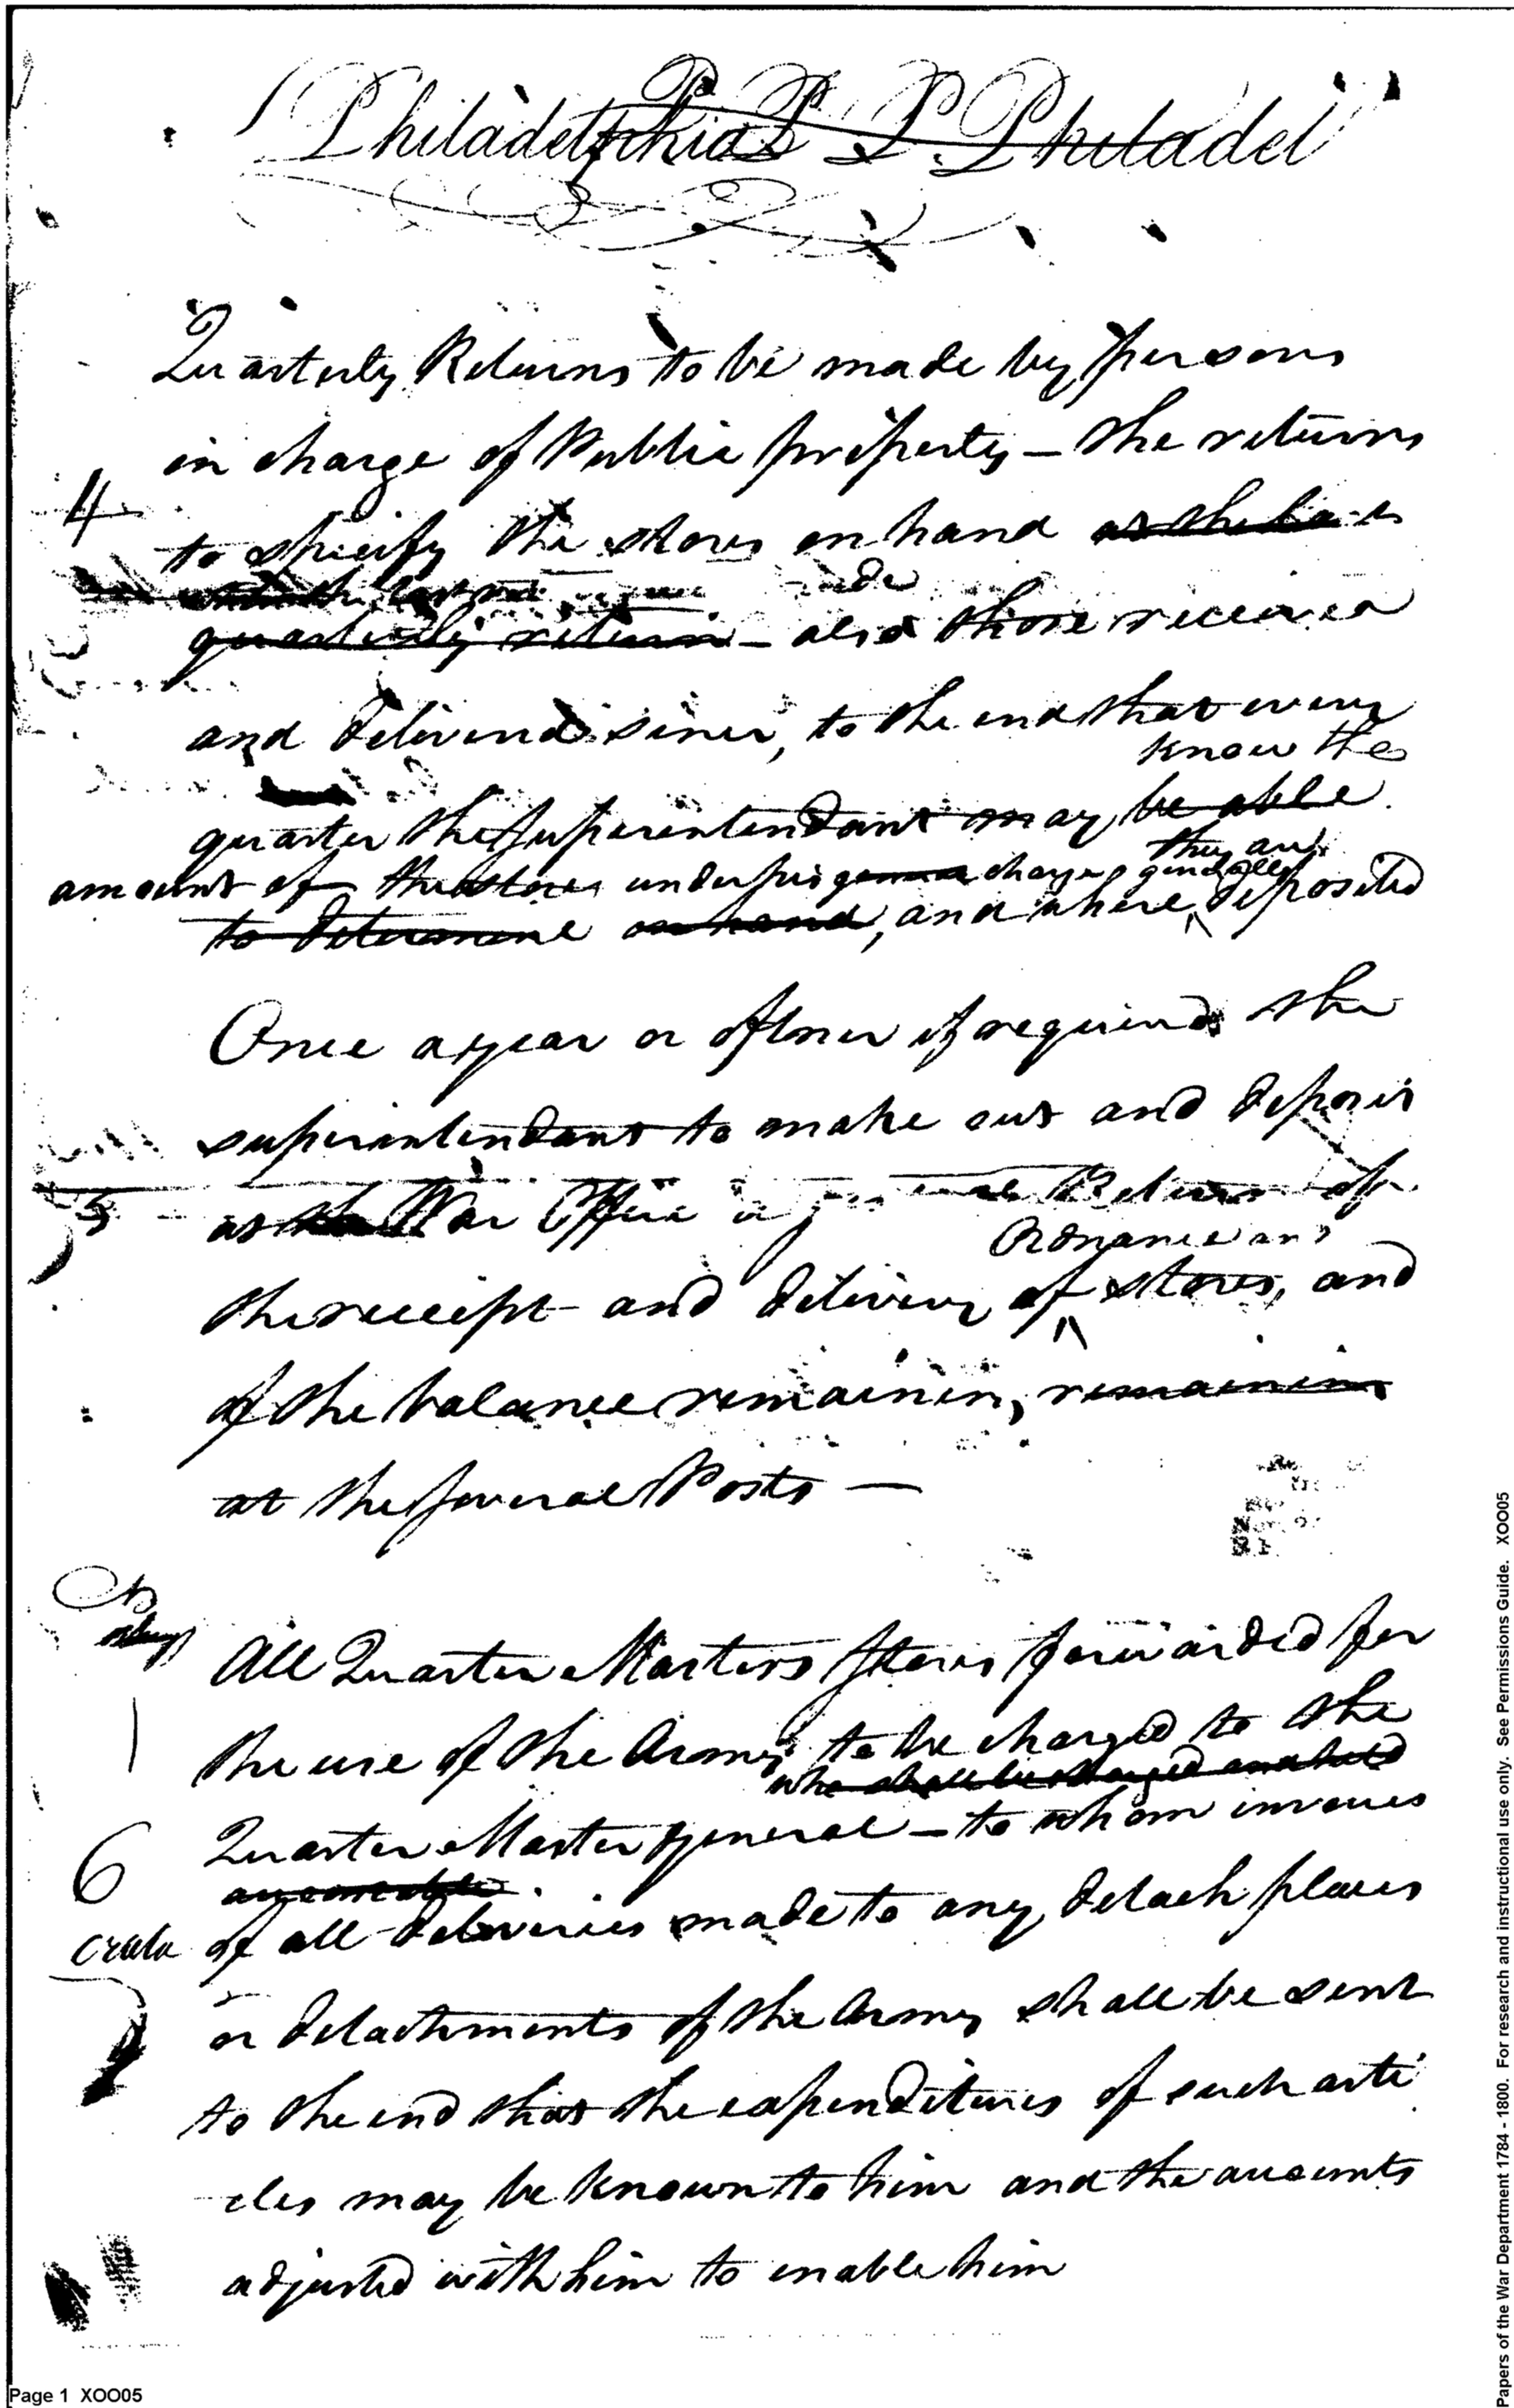 Philadelphia P P Philadel
Quarterly Returns to be made by persons
in charge of Public property – the returns
4
to specify the stores on hand
quarterly return – also those received
and delivered since, to the end that every
know the
quarter the Superintendant may be able
they are
amount of the stores under his charge generally
to determine on hand, and where deposited
Once a year or oftner if required the
superintendant to make out and deposit
5
at the War Office a Return of
Ordnance and
the receipt and delivery of stores, and
of the balance remaining remaining
at the several Posts —
All Quarter Masters Stores forwarded for
the use of the Army to be charged to the
who shall be charged and held
Quarter Master general – to whom invoices
6
accountable
of all deliveries made to any detach places
or detachments of the Army shall be sent
to the end that the expenditures of such arti
cles may be known to him and the accounts
adjusted with him to enable him
Page 1 XOO05
Papers of the War Department 1784 - 1800. For research and instructional use only. See Permissions Guide. XOO05